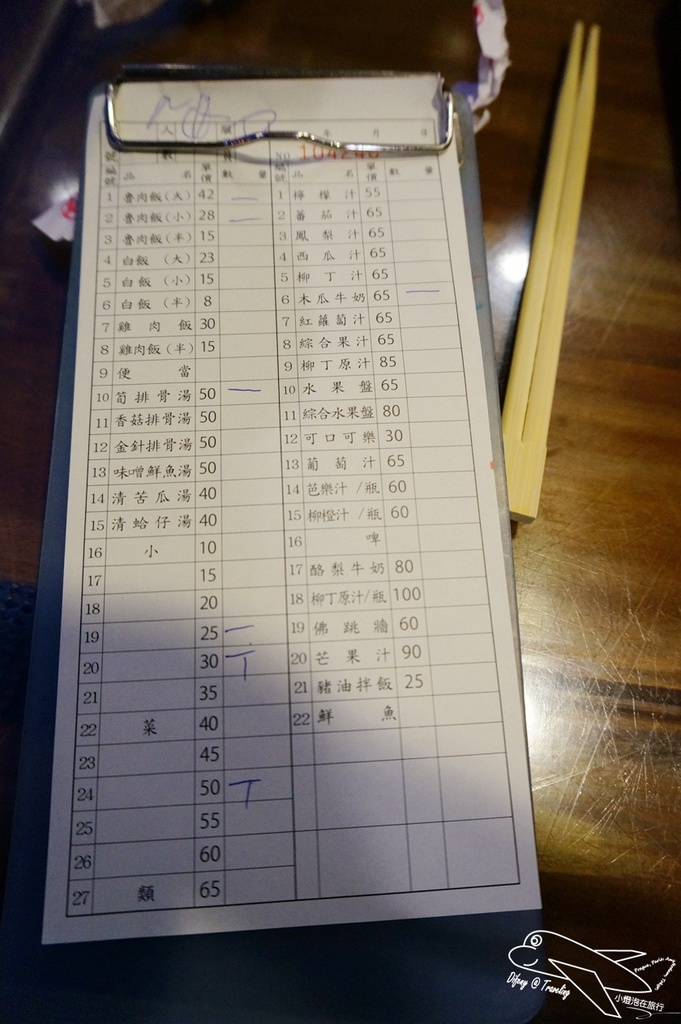 人數 年 月 日
NO 104240
編號 品 名 單價 數 量
1 魯肉飯(大) 42 一
2 魯肉飯(小) 28 一
3 魯肉飯(半) 15
4 白飯 (大) 23
5 白飯 (小) 15
6 白飯 (半) 8
7 雞肉飯 30
8 雞肉飯(半) 15
9 便當
10 筍排骨湯 50 一
11 香菇排骨湯 50
12 金針排骨湯 50
13 味噌鮮魚湯 50
14 清苦瓜湯 40
15 清蛤仔湯 40
16 小 10
17 15
18 20
19 25 一
20 30 丅
21 35
22 菜 40
23 45
24 50 丅
25 55
26 60
27 類 65
編號 品 名 單價 數 量
1 檸檬汁 55
2 蕃茄汁 65
3 鳳梨汁 65
4 西瓜汁 65
5 柳丁汁 65
6 木瓜牛奶 65 一
7 紅蘿蔔汁 65
8 綜合果汁 65
9 柳丁原汁 85
10 水果盤 65
11 綜合水果盤 80
12 可口可樂 30
13 葡萄汁 65
14 芭樂汁/瓶 60
15 柳橙汁/瓶 60
16 啤
17 酪梨牛奶 80
18 柳丁原汁/瓶 100
19 佛跳牆 60
20 芒果汁 90
21 豬油拌飯 25
22 鮮魚
Difeny @ Traveling
小燈泡在旅行